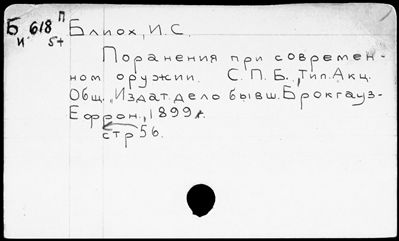 Б 618 П Блиох, И.С.
И 5+
Поранения при современ-
ном оружии. С.П.Б., Тип. Акц.
Общ. „Издат. дело бывш. Брокгауз-
Ефрон., 1899 г.
стр 56.